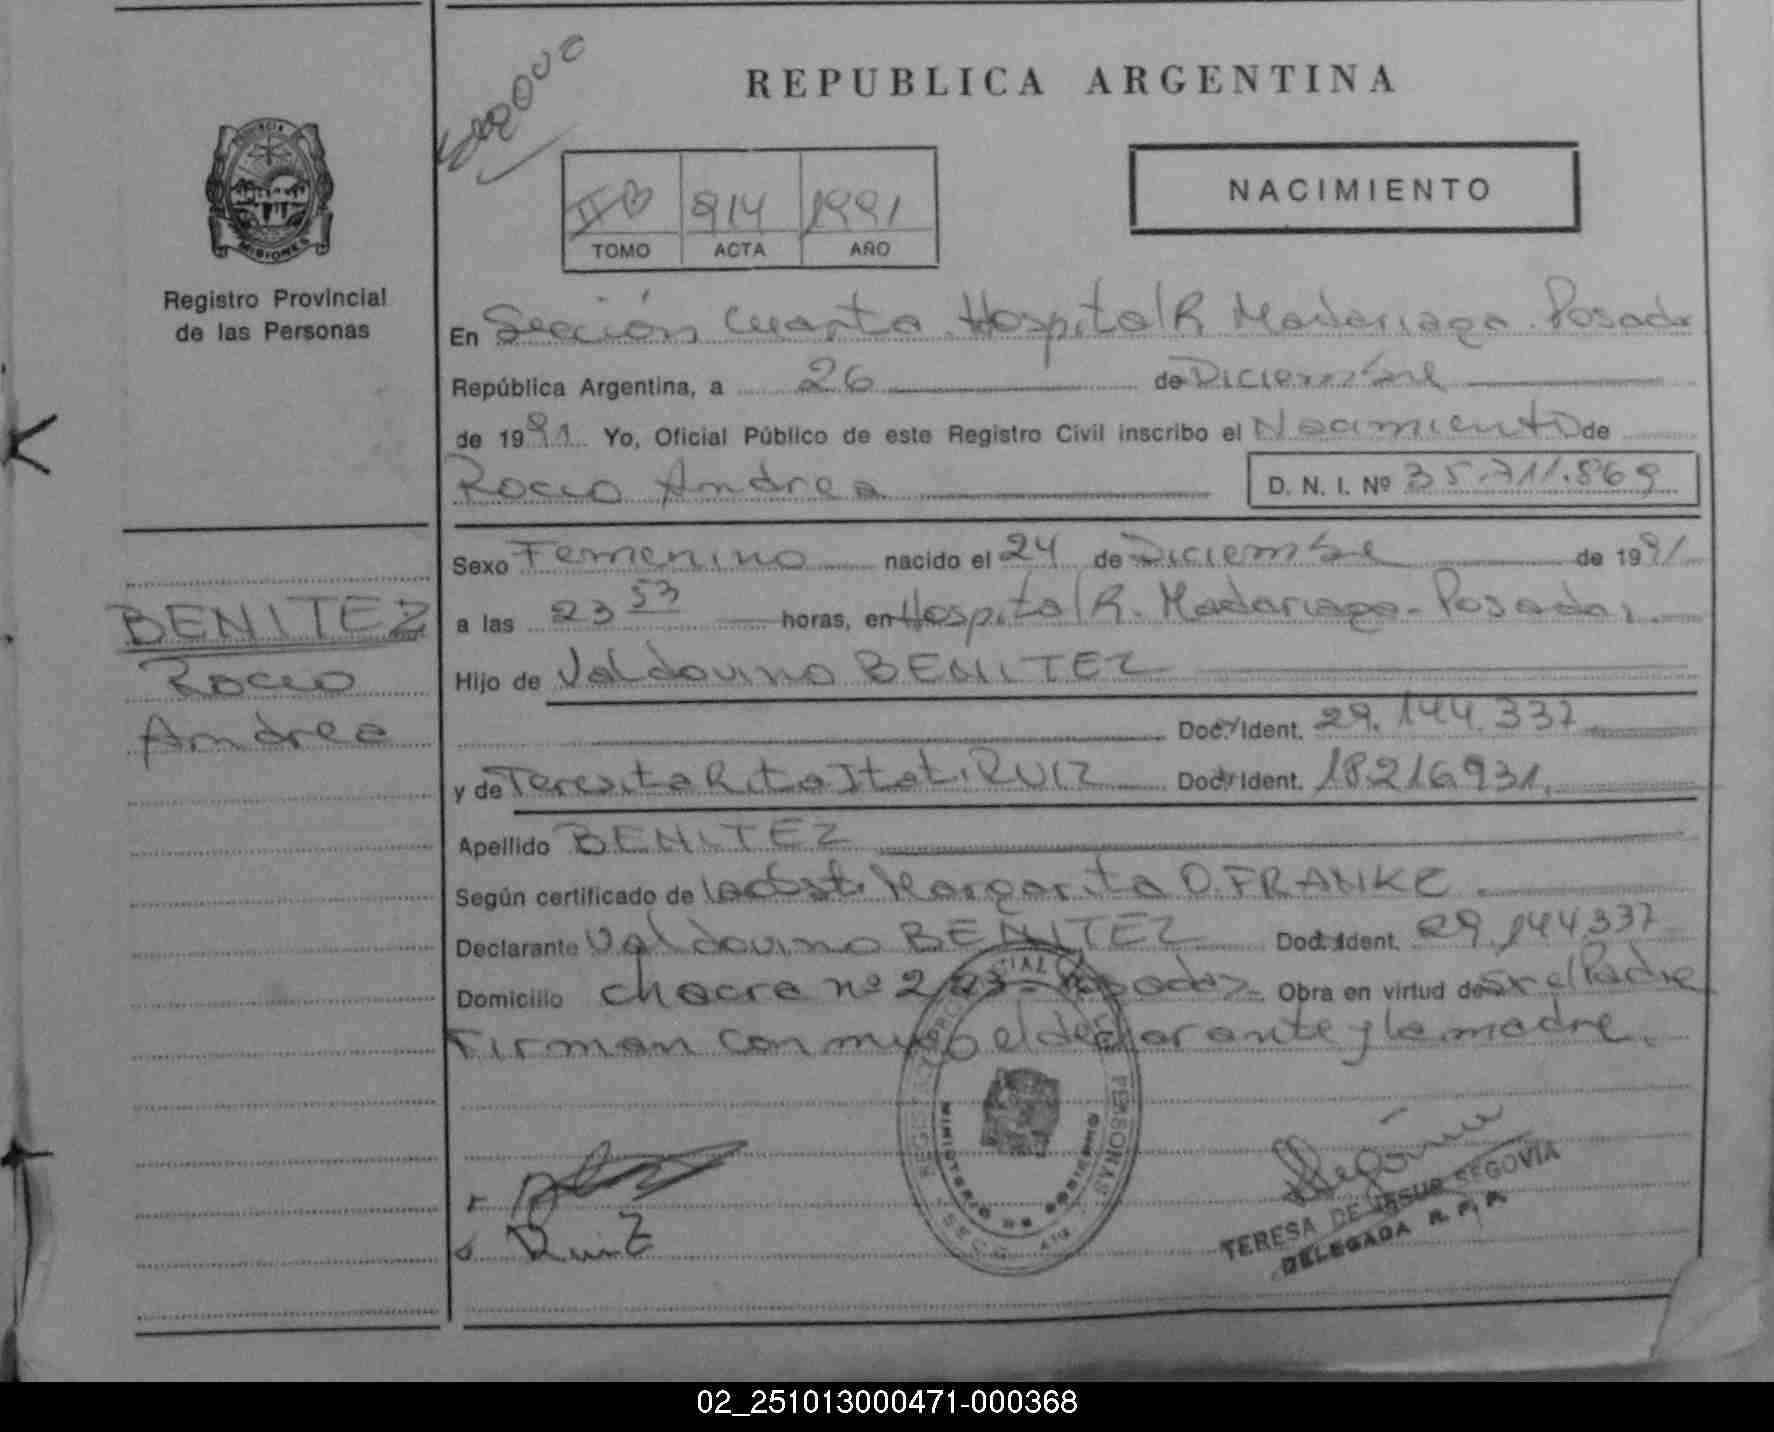 REPUBLICA ARGENTINA
PROVINCIA
MISIONES
Registro Provincial
de las Personas
II B 914 1991
TOMO ACTA AÑO
NACIMIENTO
En Sección Cuarta Hospital R Madariaga. Posadas
República Argentina, a 26 de Diciembre
de 1991 Yo, Oficial Público de este Registro Civil inscribo el Nacimiento de
Rocio Andrea D. N. I. Nº 35.711.869
Sexo Femenino nacido el 24 de Diciembre de 1991
a las 23 53 horas, en Hospital R. Madariaga - Posadas.
Hijo de Valdovino BENITEZ
Doc. Ident. 29.144.337
y de Teresita Rita Itati RUIZ Doc. Ident. 18216931.
Apellido BENITEZ
Según certificado de la Obst. Margarita O. FRANKE.
Declarante Valdovino BENITEZ Doc. Ident. 29.144337
Domicilio chacra nº Posadas. Obra en virtud de ser el Padre
Firman conmigo el declarante y la madre.
BENITEZ
Rocio
Andrea
Ruiz
MINISTERIO DE GOBIERNO
PERSONAS
TERESA DE JESUS SEGOVIA
DELEGADA R. P. P.
02_251013000471-000368